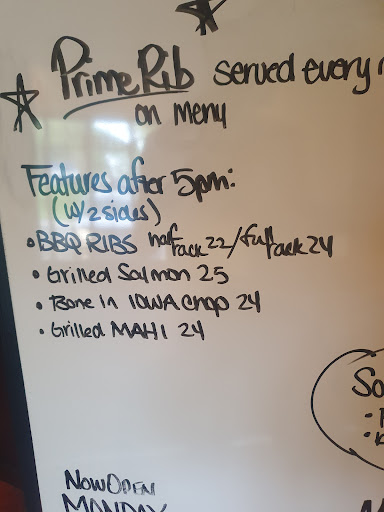 Prime Rib served every
on menu
Features after 5pm:
(w/2 sides)
• BBQ RIBS half rack 22/full rack 24
• Grilled Salmon 25
• Bone In IOWA Chop 24
• Grilled MAHI 24
So
NOW OPEN
MONDAY